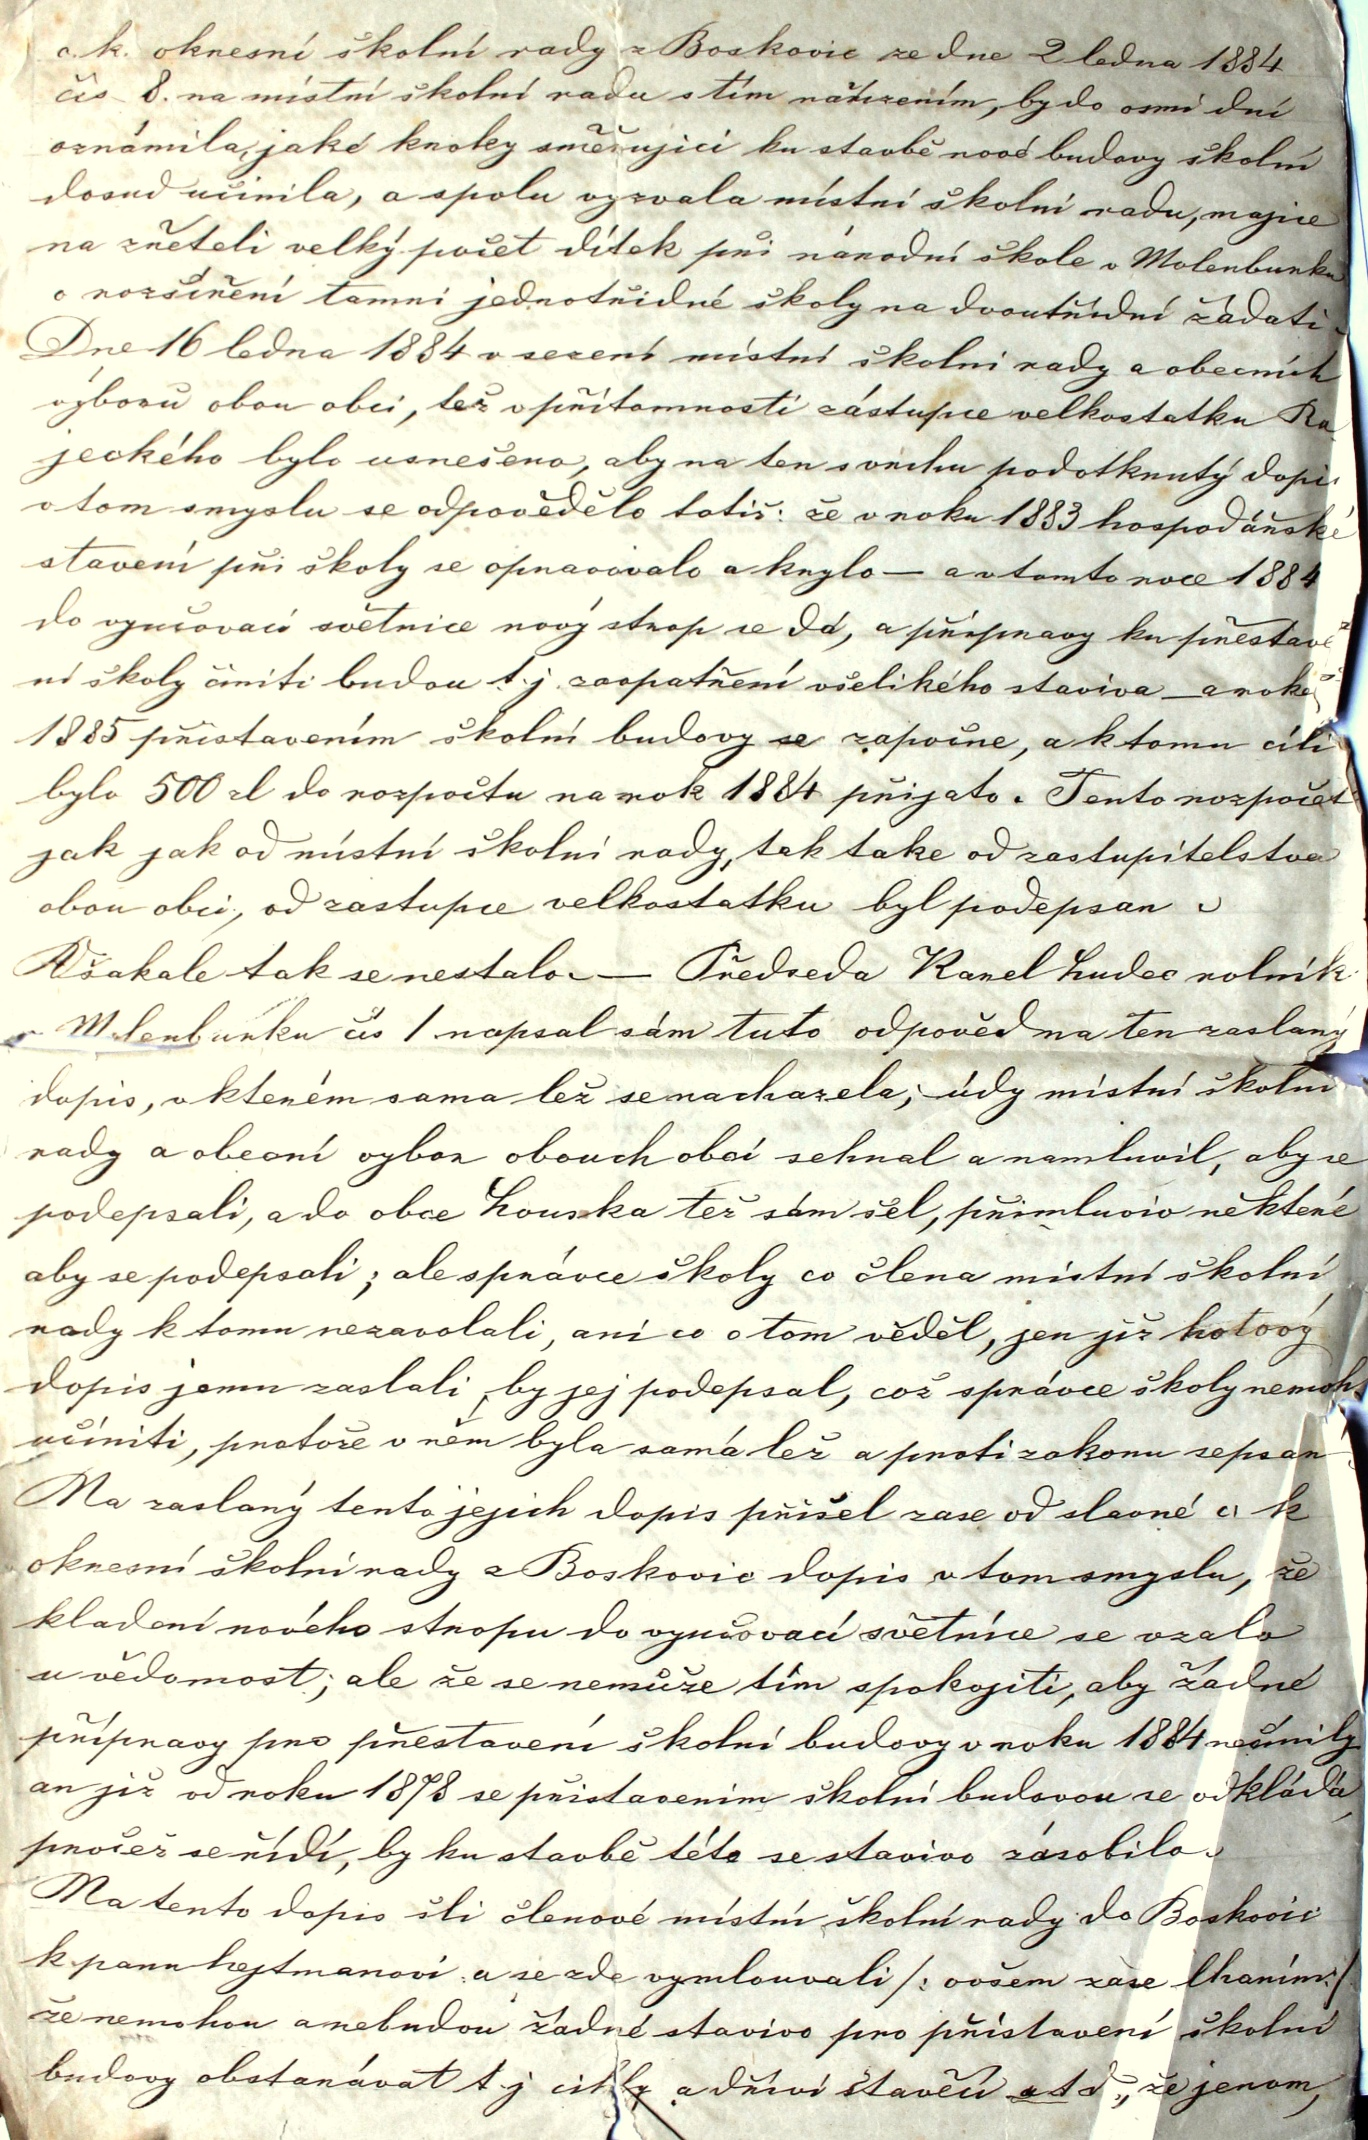 c. k. okresní školní rady z Boskovic ze dne 2 ledna 1884
čís 8. na místní školní radu s tím nářízením, by do osmi dní
oznámila, jaké kroky směřujicí ku stavbě nové budovy školní
dosud učinila, a spolu vyzvala místní školní radu, majíce
na zřeteli velký počet dítek při národní škole v Molenburku
o rozšíření tamní jednotřidné školy na dvoutřídní žádati.
Dne 16 ledna 1884 v sezení místní školní rady a obecních
výborů obou obcí, též v přítomnosti zástupce velkostatku Ra
jeckého bylo usnešeno, aby na ten svrchu podotknutý dopis
v tom smyslu se odpovědělo totiž: že v roku 1883 hospodářské
stavení při školy se opravovalo a krylo — a v tomto roce 1884
do vyučovací světnice nový strop se dá, a přípravy ku přestavě
ní školy činiti budou t. j. zaopatření všelikého staviva — a roku
1885 přistavením školní budovy se započne, a k tomu cíli
bylo 500 zl do rozpočtu na rok 1884 přijato. Tento rozpočet
jak jak od místní školní rady, tak take od zastupitelstva
obou obcí, od zastupce velkostatku byl podepsan.
Však ale tak se nestalo. — Předseda Karel Hudec rolník
v Molenburku čís 1 napsal sám tuto odpověd na ten zaslaný
dopis, v kterém sama lež se nachazela; údy místní školní
rady a obecní vybor obouch obcí sehnal a namluvil, aby se
podepsali, a do obce Houska též sám šel, přimluviv některé
aby se podepsali; ale správce školy co člena místní školní
rady k tomu nezavolali, ani co o tom věděl, jen již hotový
dopis jemu zaslali, by jej podepsal, což správce školy nemohl
učíniti, protože v něm byla samá lež a proti zakonu sepsan.
Na zaslaný tento jejich dopis přišel zase od slavné c. k
okresní školní rady z Boskovic dopis v tom smyslu, že
kladení nového stropu do vyučovací světnice se vzalo
u vědomost; ale že se nemůže tím spokojiti, aby žádné
přípravy pro přestavení školní budovy v roku 1884 nečinily
an již od roku 1878 se přistavením školní budovou se odkládá,
pročež se řídí, by ku stavbě této se stavivo zásobilo.
Na tento dopis šli členové místní školní rady do Boskovic
k panu hejtmanovi a se zde vymlouvali /: ovšem zase lhaním :/
že nemohou a nebudou žádné stavivo pro přistavení školní
budovy obstarávat t. j cihly a dříví stavěcí a t d., že jenom,